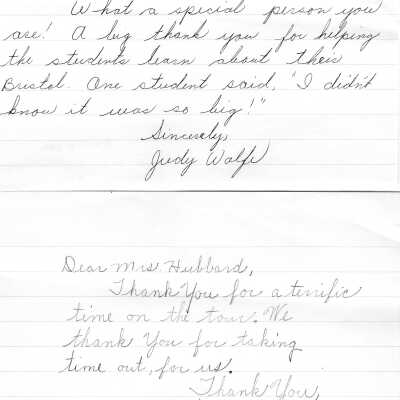 What a special person you
are! A big thank you for helping
the students learn about their
Bristol. One student said, "I didn't
know it was so big!"
Sincerely,
Judy Wolfe
Dear Mrs. Hubbard,
Thank You for a terrific
time on the tour. We
thank You for taking
time out, for us.
Thank You,